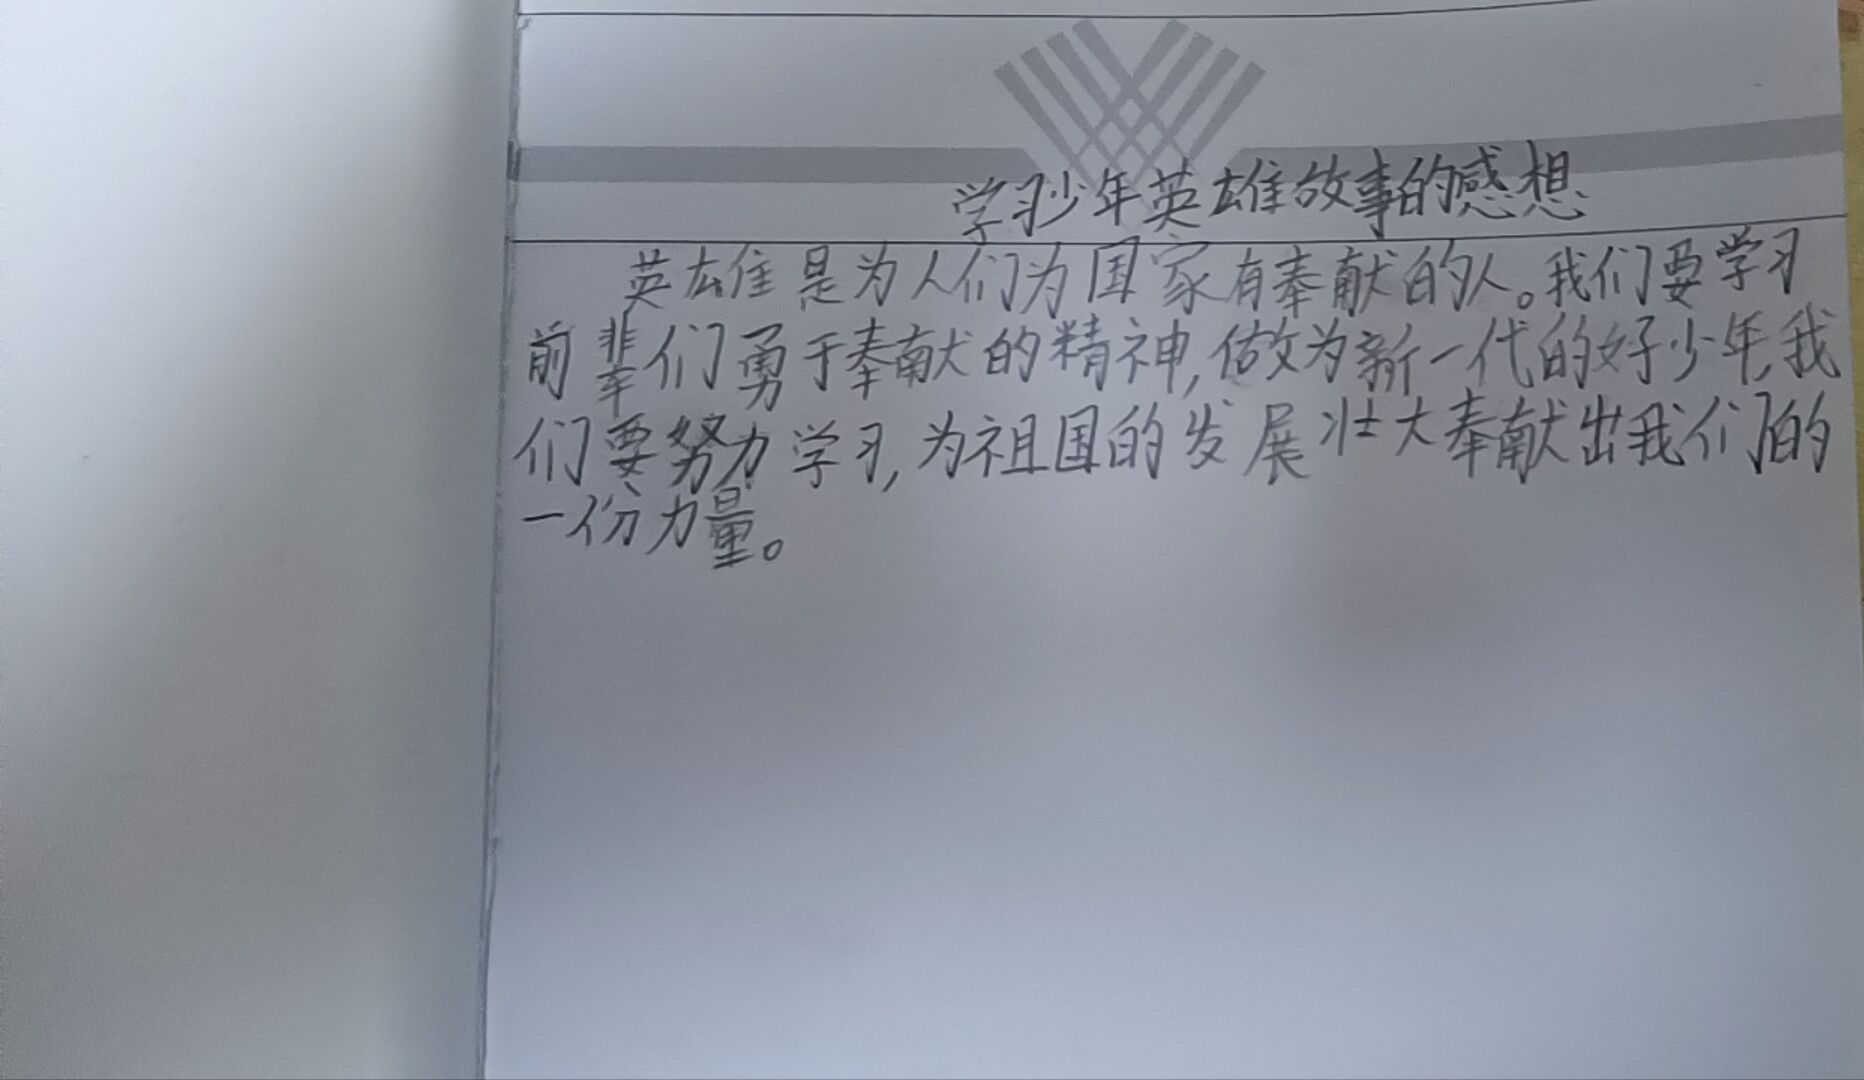 学习少年英雄故事的感想
英雄是为人们为国家有奉献的人。我们要学习
前辈们勇于奉献的精神,做为新一代的好少年,我
们要努力学习,为祖国的发展壮大奉献出我们的
一份力量。